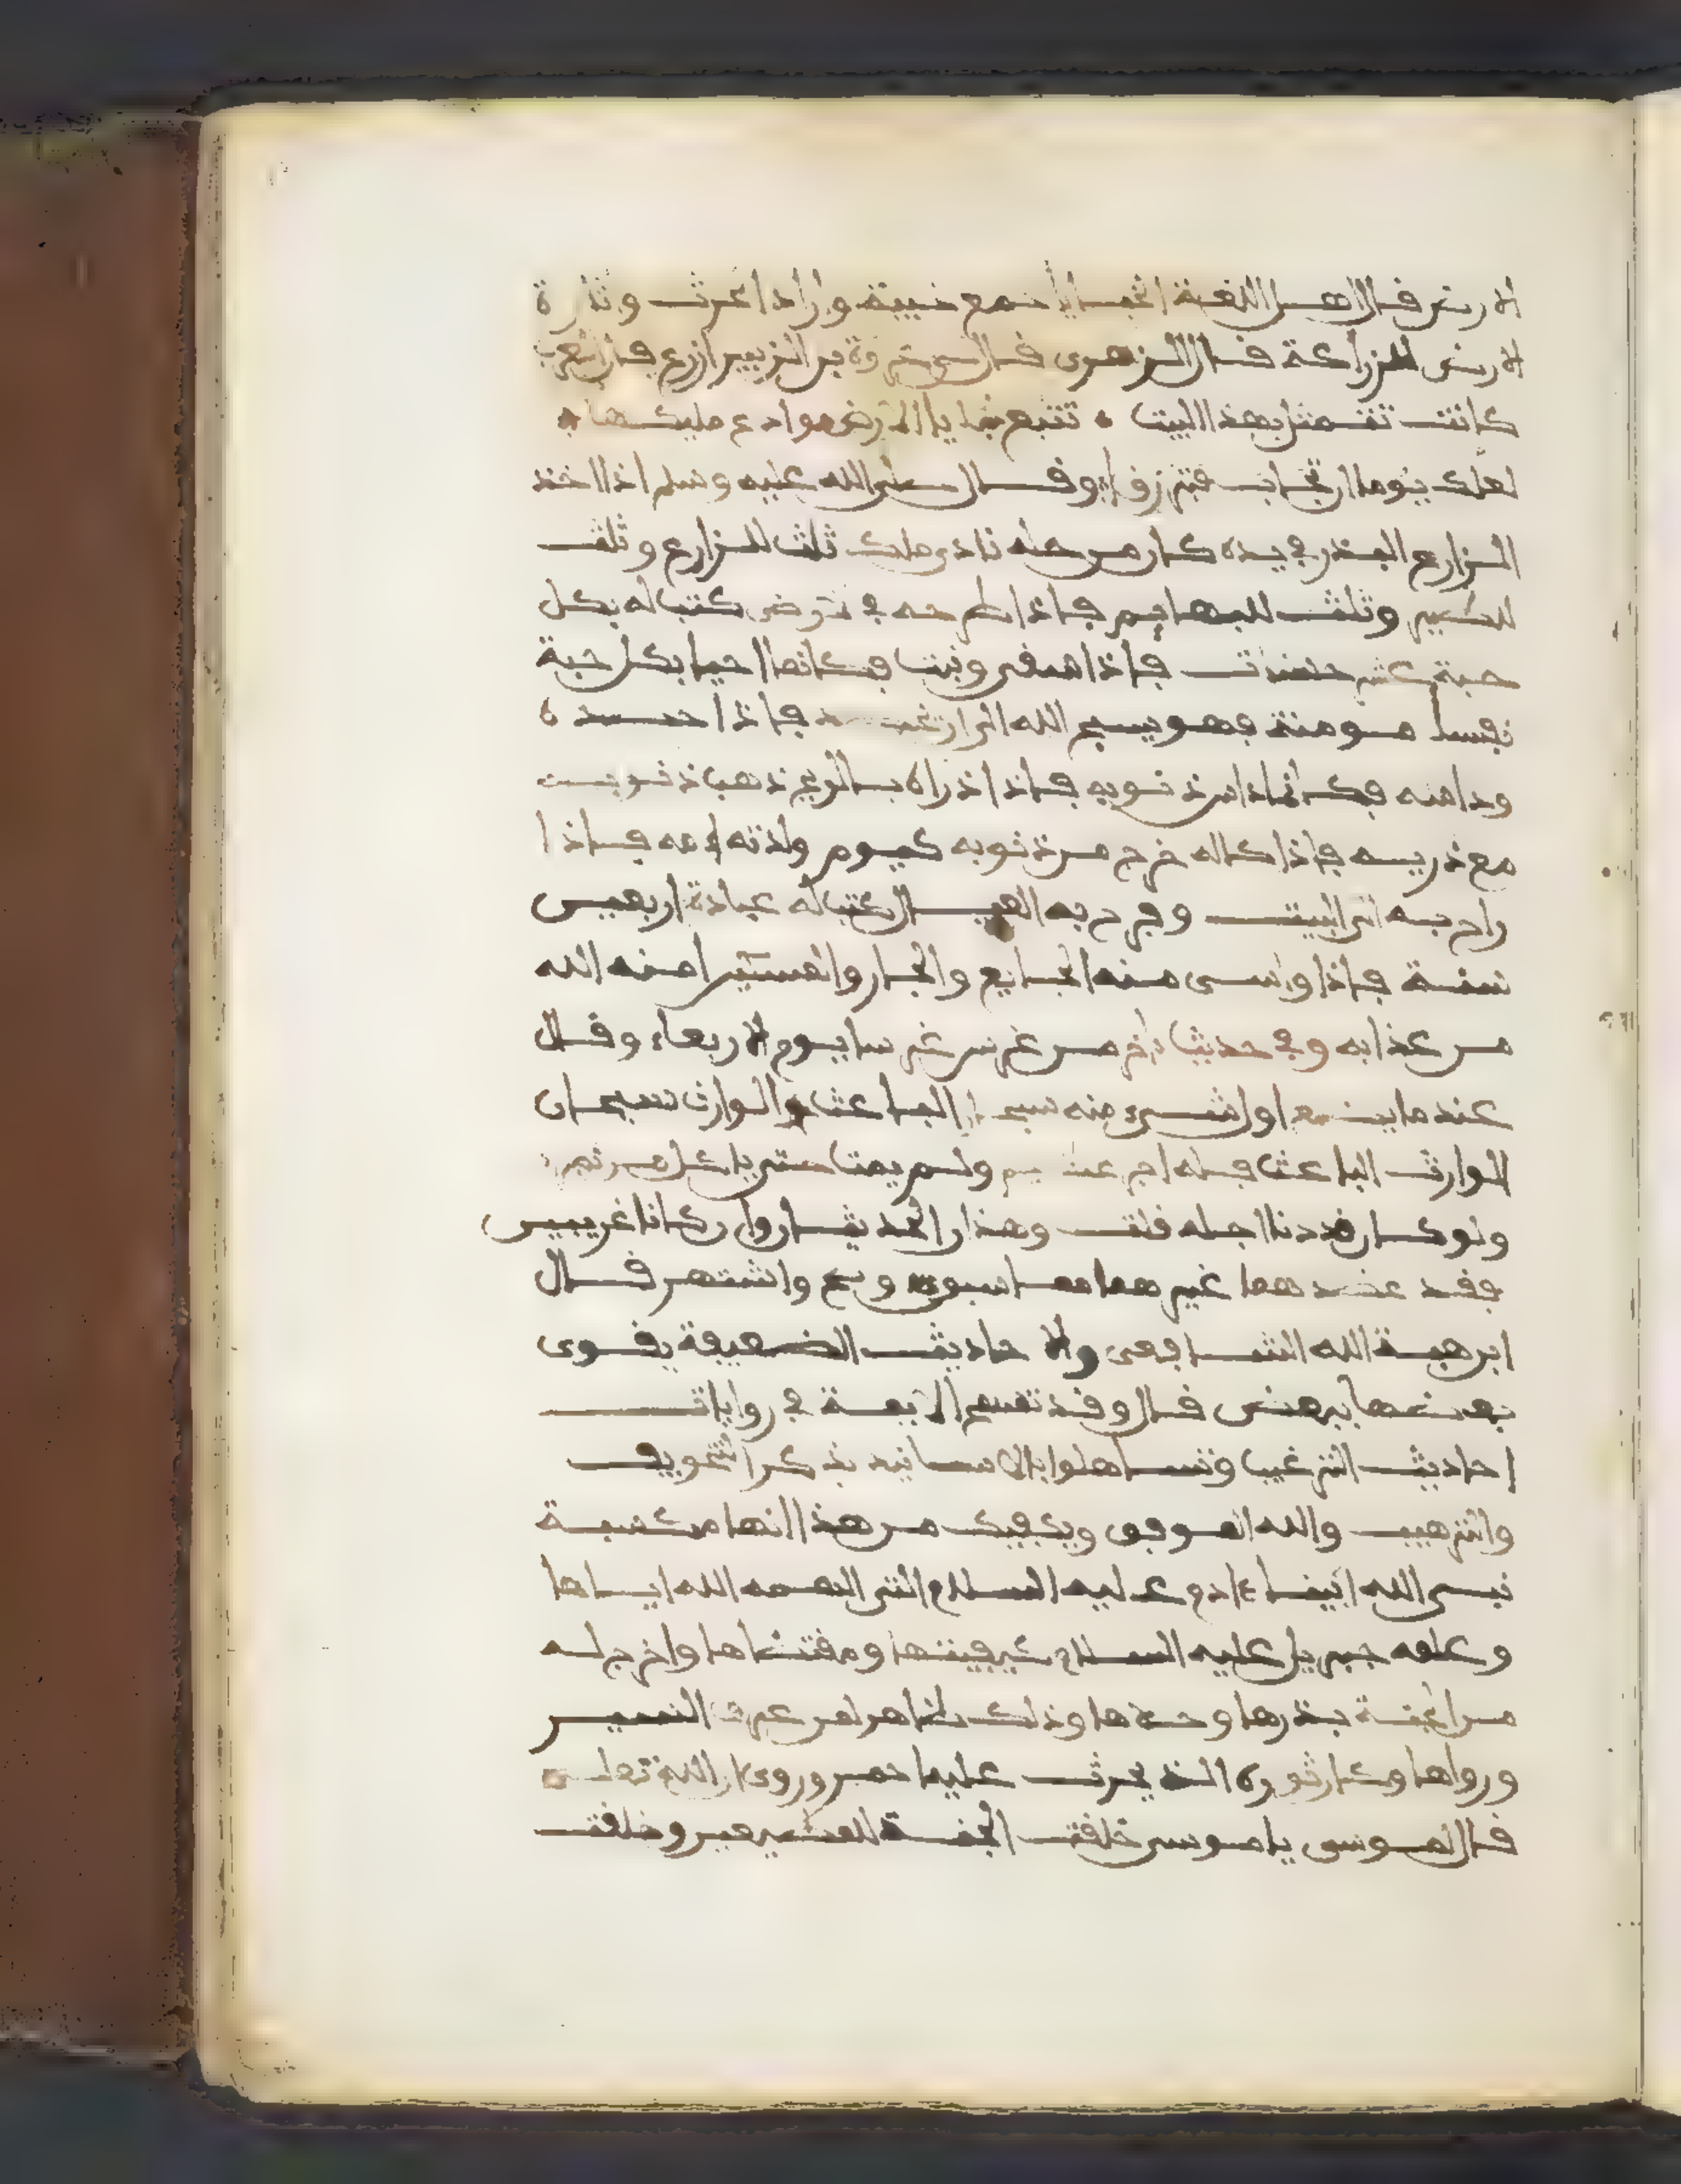 الارض قال اهل اللغة الخبايا جمع خبيئة واراد الحرث واثارة
الارض للزراعة قال الزهري قال لي عروة بن الزبير ازرع فان العرب
كانت تتمثل بهذا البيت • تتبع خبايا الارض وادع مليكها •
لعلك يوما ان تجاب فترزقا وقال صلى الله عليه وسلم اذا اخذ
الزارع البذر في يده كان من حله نادى ملك ثلث للزارع وثلث
للطير وثلث للبهايم فاذا طرحه في الارض كتب له بكل
حبة عشر حسنات فاذا سقى ونبت فكانما احيا بكل حبة
نفسا مومنة فهو يسبح الله الى ان يحصد فاذا حصده
وداسه فكانما داس ذنوبه فاذا ذراه بالريح ذهبت ذنوبه
مع ذريه فاذا كاله خرج من ذنوبه كيوم ولدته امه فاذا
راح به الى البيت وفرح به العيال كتب له عبادة اربعين
سنة فاذا واسى منه الجايع والجار والمسكين امنه الله
من عذابه وفي حديث اخر من غرس غرسا يوم الاربعاء وقال
عند ما يضع اول شيء منه سبحان الباعث والوارث سبحان
الوارث الباعث فله اجر عظيم ولم يمت حتى ياكل من ثمره
ولو كان قددنا اجله قلت وهذان الحديثان وان كانا غريبين
فقد عضدهما غيرهما مما سبق وصح واشتهر قال
ابن هبة الله الشافعي والاحاديث الضعيفة يقوى
بعضها ببعض قال وقد تسمح الايمة في روايات
احاديث الترغيب وتساهلوا بالاسانيد بذكر التخويف
والترهيب والله الموفق ويكفيك من هذا انها مكسبة
نبي الله ابينا ءادم عليه السلام التي الهمه الله اياها
وعلمه جبريل عليه السلام كيفيتها ومقتضاها واخرج له
من الجنة بذرها وحبها وذلك ظاهر لمن عرف السير
ورواها وكان ثوره الذي حرث عليه احمر وروي ان الله تعلى
قال لموسى يا موسى خلقت الجنة للمطيعين وخلقت